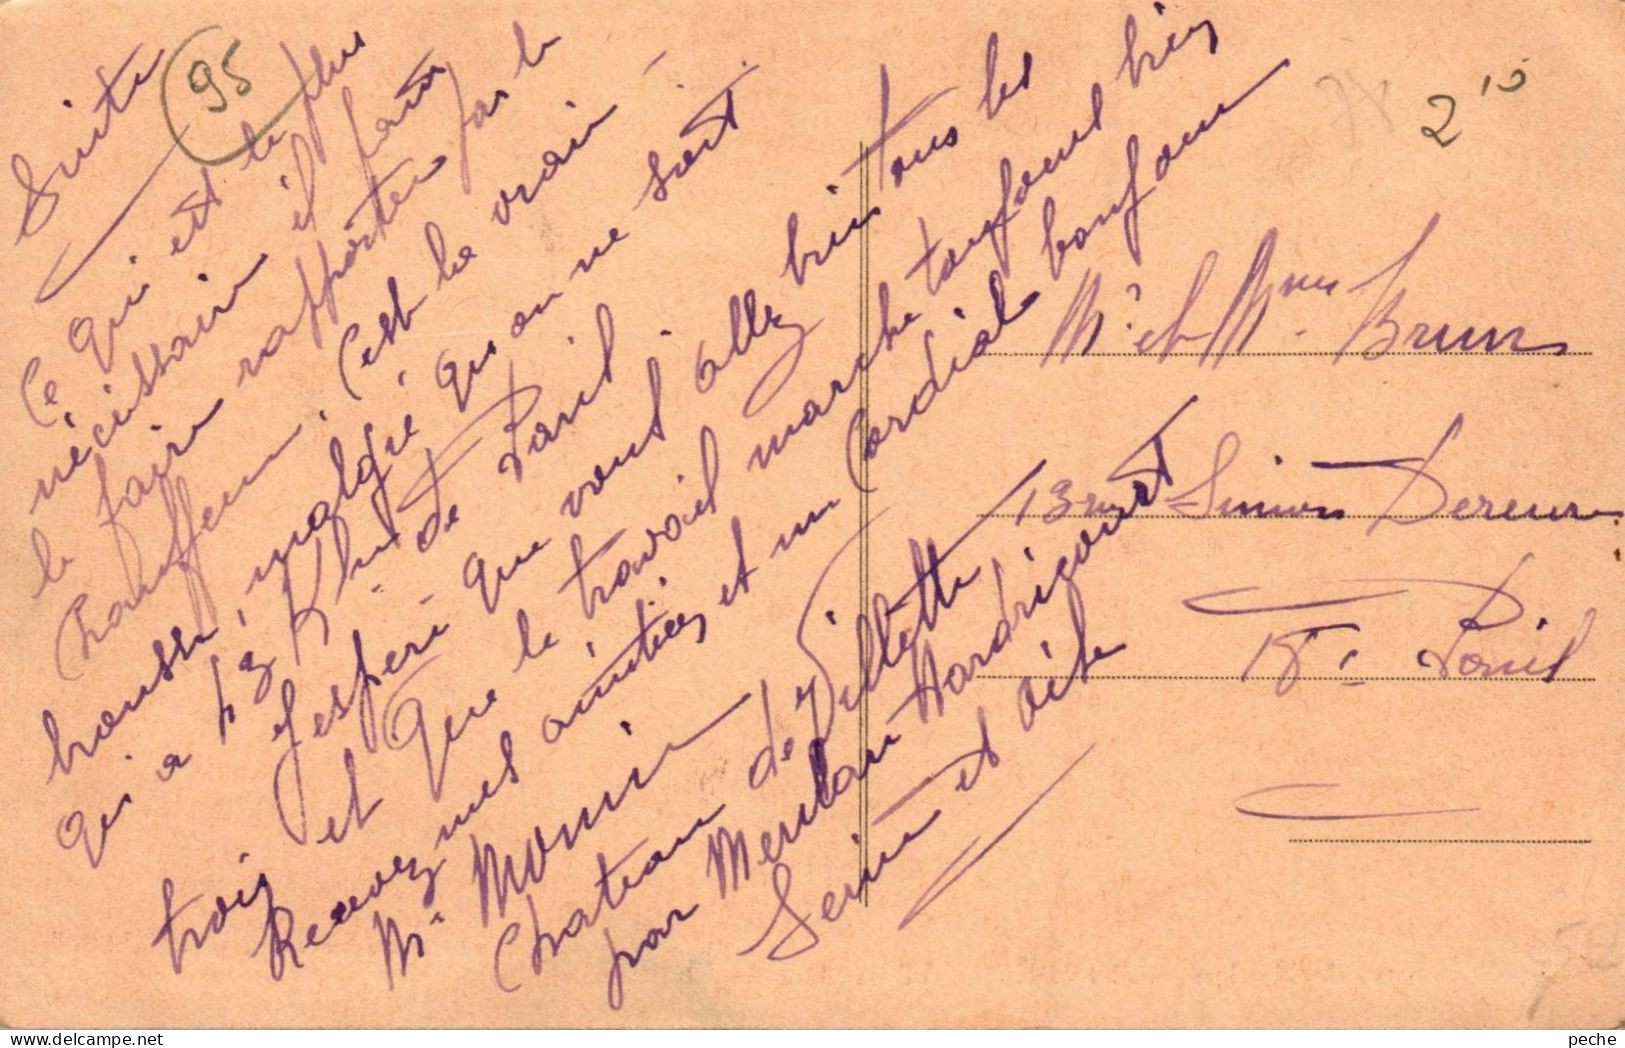 Suite
95
Ce qui est le plus
nécessaire il faut
le faire rapporter par le
chauffeur. C'est la vraie
brousse, malgré qu'on ne soit
qu'à 43 Km de Paris.
J'espère que vous allez bien tous les
trois et que le travail marche toujours bien
Recevez mes amitiés et un Cordial bonjour
Mr Monin
Chateau de Villette
par Meulan Hardricourt
Seine et Oise
2 10
Mr et Mme Brun
13 rue Simon Dereure
18e Paris
peche